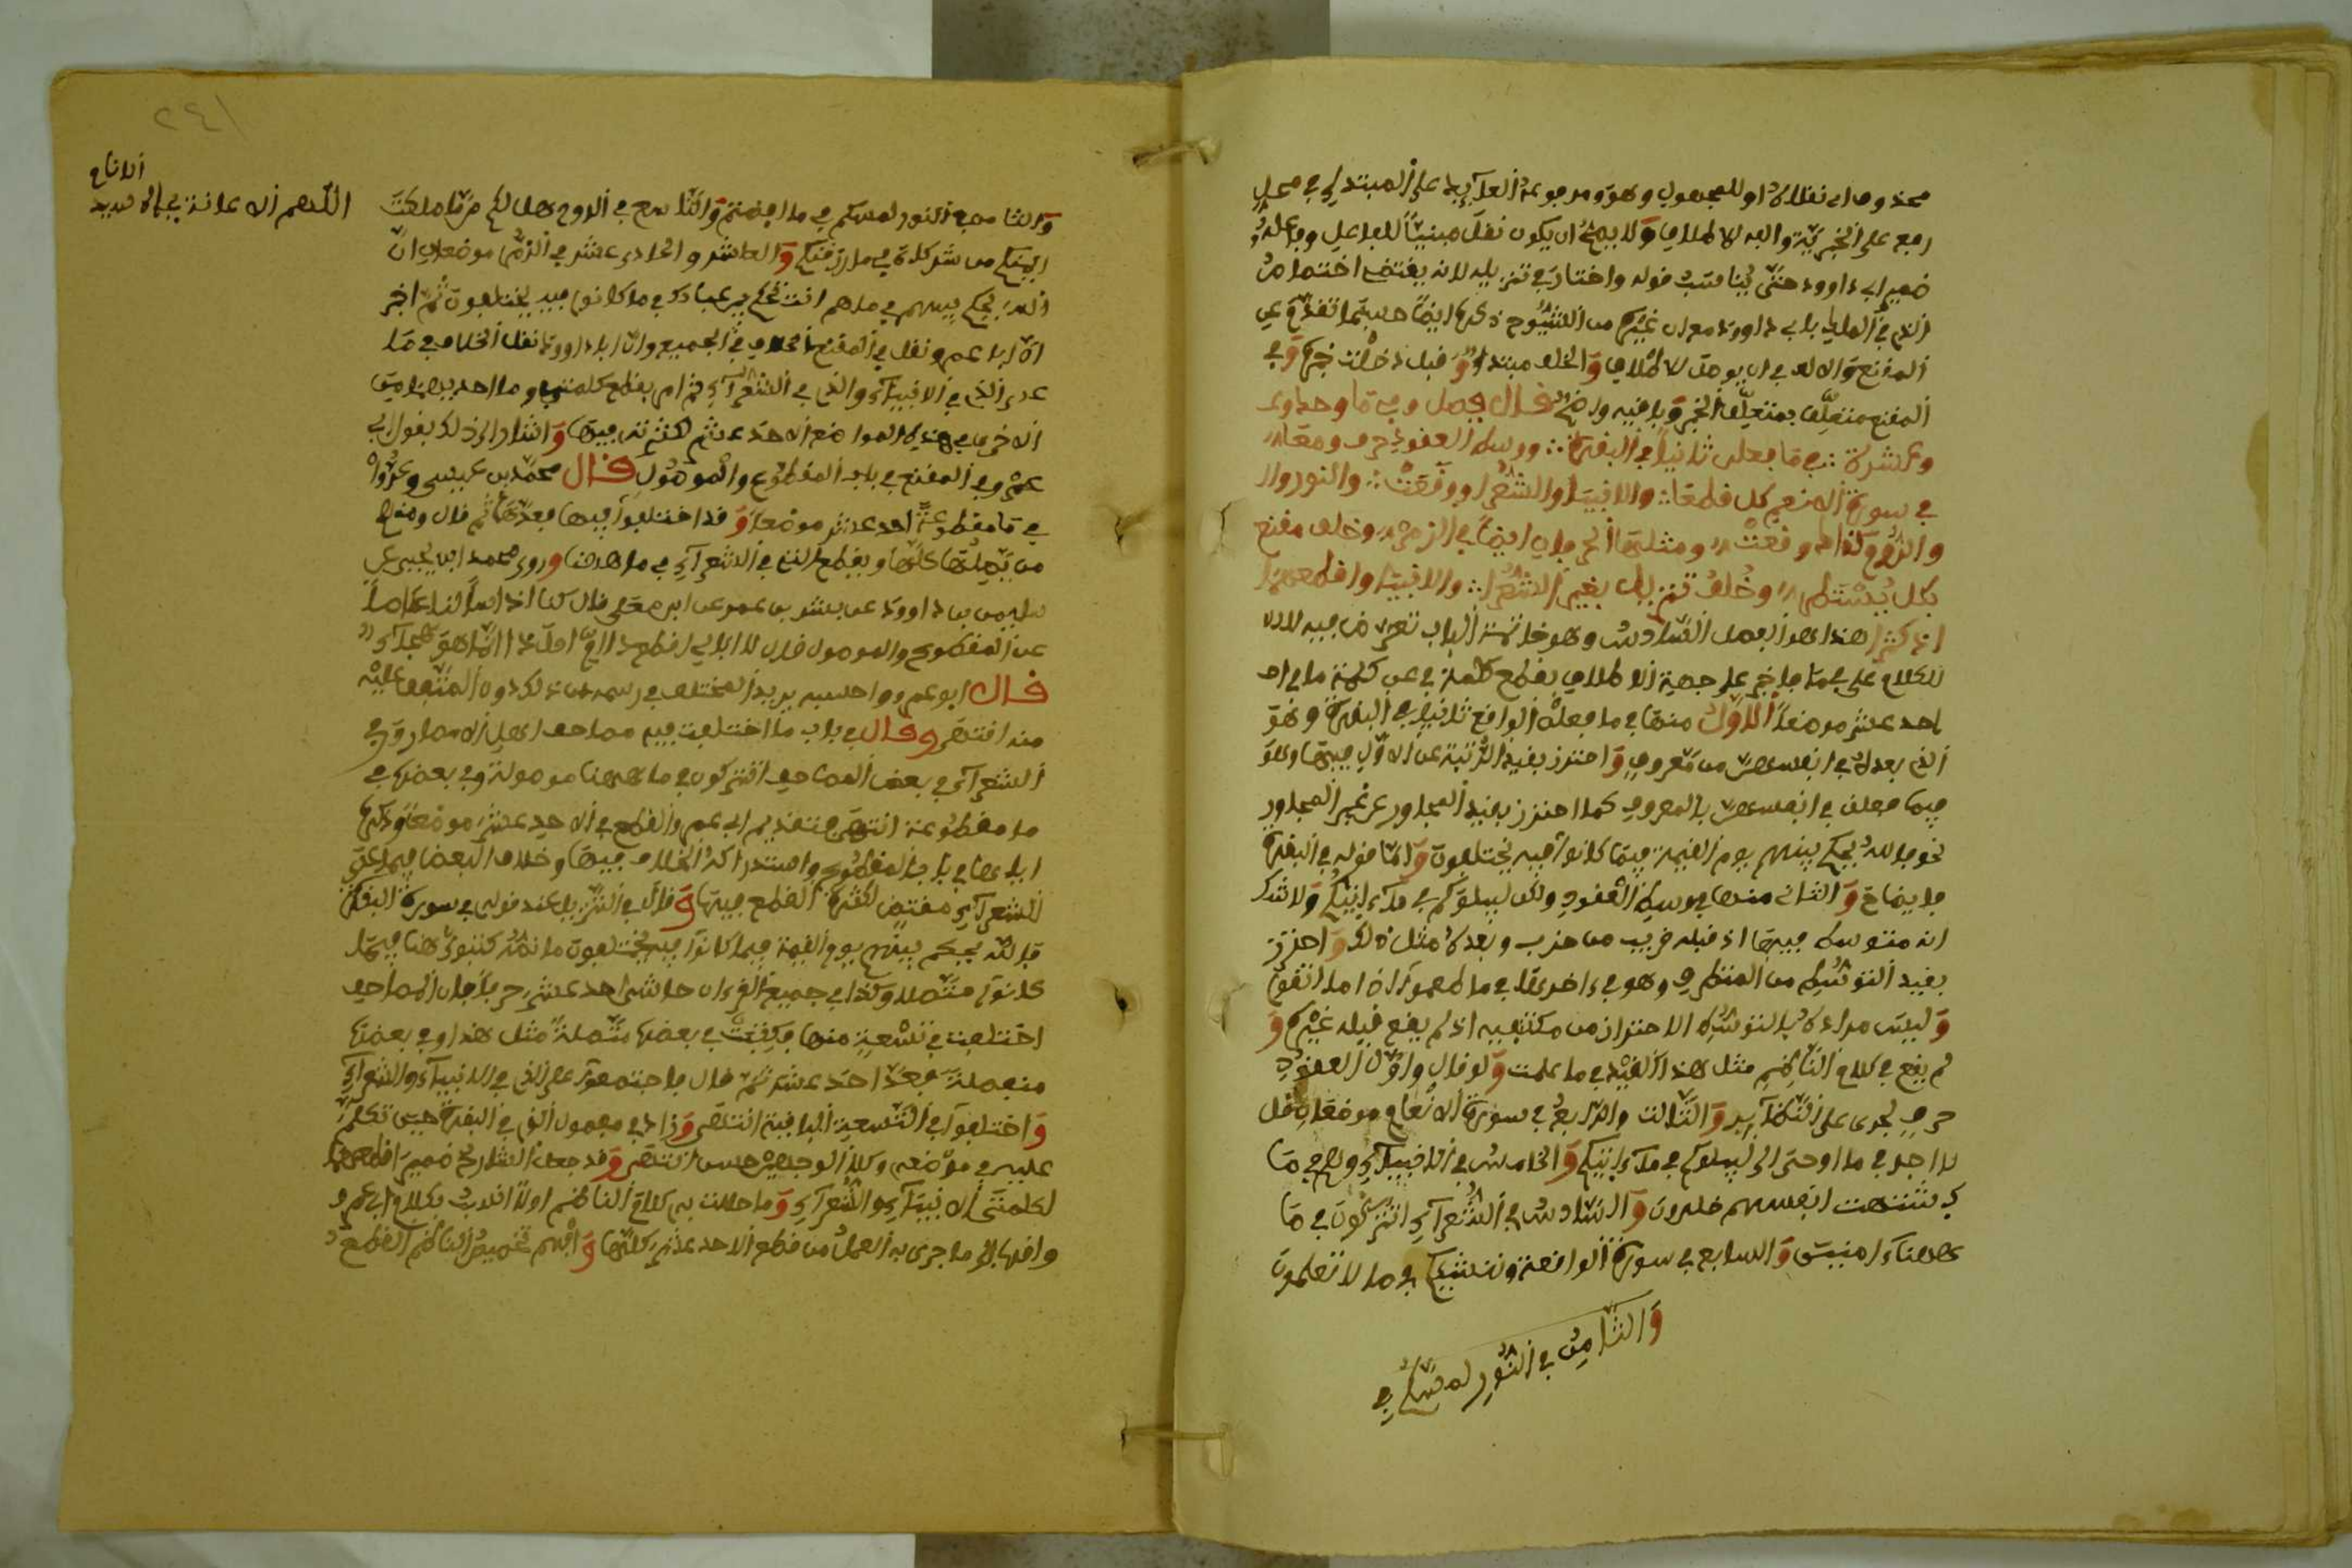 محذوف اي نقلا او للمجهول وهو ومرفوعه العآئد على المبتدإ في محل
رفع على الخبرية والفه للاطلاق ولا يصح ان يكون نقل مبنيا للفاعل وفاعله
ضمير ابي داوود حتى يناسب قوله واختار في تنزيله لانه يقتضي اختصاص
المقنع والالف في ان يوصل للاطلاق والخلف مبتدأ وقبل دخلت خبره وفي
المقنع متعلق بمتعلق الخبر وباقيه واضح قال فصل وفي ما واحدا و
وعشرة في ما فعلن ثانيا في البقرة ووسط العقود حرف ومعا
في سورة الانعام كل قطعا والانبيا والشعرا ووقعت والنور وال
والروم كذا وقعت ومثلها الحرفان ايضا في الزمر وخلف مقنع
بكل مستطر وخلف تنزيل بغير الشعرا والانبيا واقطعهما
اذ كثرا هذا هو الفصل السادس وهو خاتمة الباب تعرض فيه للا
للكلام على في ما فاخبر على جهة الاطلاق بقطع كلمة في عن كلمة ما في احد
احد عشر موضعا الاول منها في ما فعلن الواقع ثانيا في البقرة وهو
الذي بعده في انفسهن من معروف واحترز بقيد الرتبة عن الاول فيها وهو
فيما فعلن في انفسهن بالمعروف كما احترز بقيد المجاور عن غير المجاور
نحو فالله يحكم بينهم يوم القيمة فيما كانوا فيه يختلفون واما قوله في البقرة
فايضاح والثاني منها في وسط العقود ولكن ليبلوكم في مآ ءاتيكم ولا شك
انه متوسط فيها اذ قبله قريب من حزب وبعده مثل ذلك واحترز
بقيد التوسط من المتطرف وهو في ءاخرها في ما طعموا اذا ما اتقوا
وليس مراده بالتوسط الاحتراز من مكتنفيه اذ لم يقع قبله غيره و
لم يقع في كلام الناظم مثل هذا القيد في ما علمت ولو قال واول العقود
حرف لجرى على النظآئر والثالث والرابع في سورة الانعام موضعان قل
لا اجد في ما اوحي الي ليبلوكم في مآ ءاتيكم والخامس في الانبيآء وهم في ما
اشتهت انفسهم خلدون والسادس في الشعرآء اتتركون في ما
ههنآ ءامنين والسابع في سورة الواقعة وننشئكم في ما لا تعلمون
والثامن في النور لمسكم في
٢٤١
والثامن في النور لمسكم في ما افضتم والتاسع في الروم هل لكم من ما ملكت
ايمنكم من شركآء في ما رزقنكم والعاشر والحادي عشر في الزمر موضعان ان
الله يحكم بينهم في ما هم انت تحكم بين عبادك في ما كانوا فيه يختلفون ثم اخبر
ان ابا عمرو نقل في المقنع الخلاف في الجميع وان ابا داوود نقل الخلاف في ما
عدى الذي في الانبيآء والذي في الشعرآء ثم امر بقطع كلمتي
الاخرى في هذه المواضع الاحد عشر لكثرته فيها واشار الى ذلك بقول ابي
عمرو في المقنع في باب المقطوع والموصول قال محمد بن عيسى وعدوا
في ما مقطوعة احد عشر موضعا وقد اختلفوا فيها فعدها ثم قال ومنهم
من يصلها كلها ويقطع التي في الشعرآء في ما ههنا وروى محمد ابن يحيى عن
سليمن بن داوود عن بشر بن عمر عن ابن معلى قال كنا اذا سألنا عاصما
عن المقطوع والموصول قال لا ابالي اقطع ذا ام وصل ذا انما هو هجآء
قال ابو عمرو واحسبه يريد المختلف في رسمه من ذلك دون المتفق عليه
منه انتهى وقال في باب ما اختلفت فيه مصاحف اهل الامصار وفي
الشعرآء في بعض المصاحف اتتركون في ما ههنا موصولة وفي بعضها في
ما مقطوعة انتهى فتقديم ابي عمرو القطع في الاحد عشر موضعا وذكره
اياها في باب المقطوع واستدراكه الخلاف فيها وخلاف البعض فيما عدى
الشعرآء مقتض لكثرة القطع فيها وقال في التنزيل عند قوله في سورة البقرة
فالله يحكم بينهم يوم القيمة فيما كانوا فيه يختلفون ما نصه كتبوا هنا فيما
كانوا متصلا وكذا في جميع القرءان حاشى احد عشر حرفا فان المصاحف
اختلفت في تسعة منها فكتبت في بعضها متصلة مثل هذا وفي بعضها
منفصلة فعد احد عشر ثم قال فاجتمعوا على الذي في الانبيآء والشعرآء
واختلفوا في التسعة الباقية انتهى وزاد في مفصول الذي في البقرة حين تكلم
عليه في موضعه وكلا الوجهين حسن انتهى وقد جعل الشارح ضمير اقطعهما
لكلمتي الانبيآء والشعرآء وما حللت به كلام الناظم اولا انسب بكلام ابي عمرو
وافهم تخصيص الناظم القطع
اللهم الاعانة